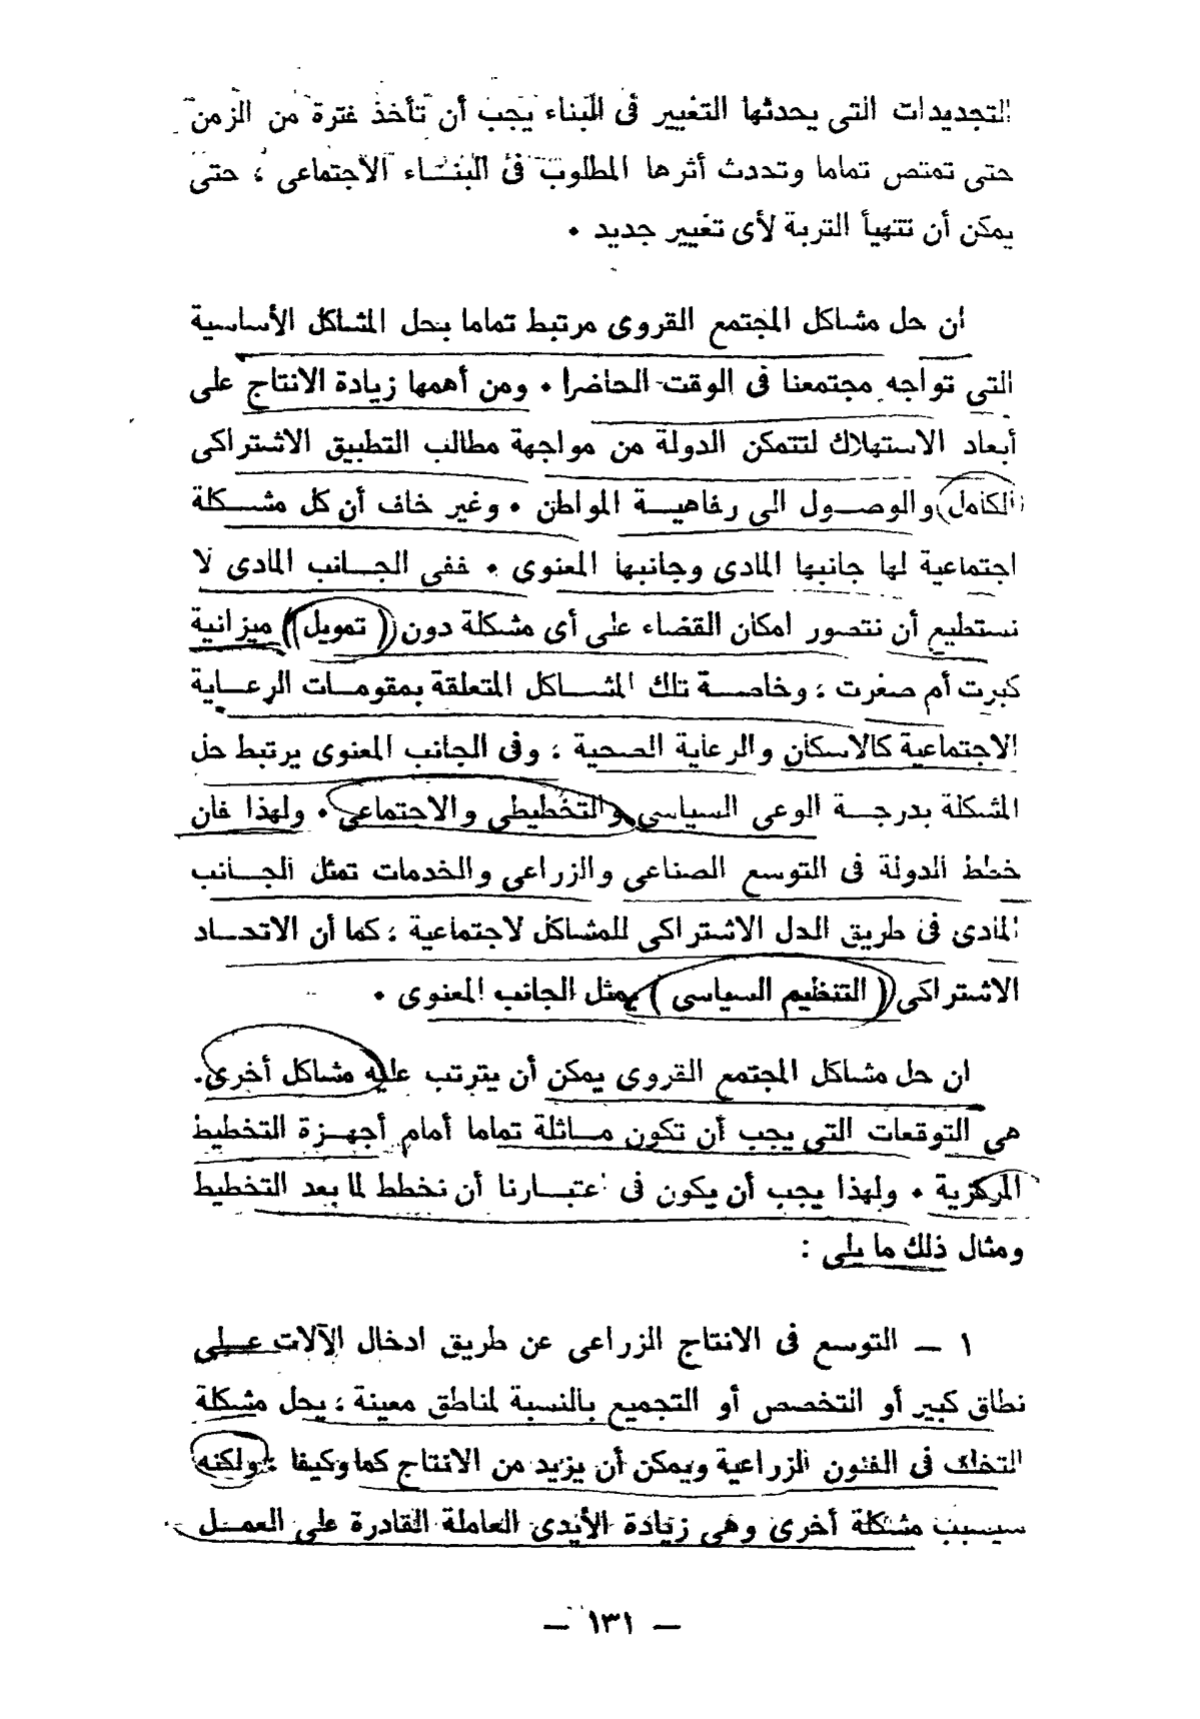 التجديدات التى يحدثها التغيير فى البناء يجب أن تأخذ فترة من الزمن
حتى تمتص تماما وتحدث أثرها المطلوب فى البنـاء الاجتماعى ، حتى
يمكن أن تتهيأ التربة لأى تغيير جديد •
ان حل مشاكل المجتمع القروى مرتبط تماما بحل المشاكل الأساسية
التى تواجه مجتمعنا فى الوقت الحاضرا • ومن أهمها زيادة الانتاج على
أبعاد الاستهلاك لتتمكن الدولة من مواجهة مطالب التطبيق الاشتراكى
الكامل والوصـول الى رفاهيـة المواطن • وغير خاف أن كل مشـكلة
اجتماعية لها جانبها المادى وجانبها المعنوى • ففى الجـانب المادى لا
نستطيع أن نتصور امكان القضاء على أى مشكلة دون (( تمويل )) ميزانية
كبرت أم صغرت ، وخاصـة تلك المشـاكل المتعلقة بمقومـات الرعـاية
الاجتماعية كالاسكان والرعاية الصحية ، وفى الجانب المعنوى يرتبط حل
المشكلة بدرجـة الوعى السياسى والتخطيطى والاجتماعى • ولهذا فان
خطط الدولة فى التوسع الصناعى والزراعى والخدمات تمثل الجـانب
المادى فى طريق الحل الاشتراكى للمشاكل لاجتماعية ، كما أن الاتحـاد
الاشتراكى (( التنظيم السياسى )) يمثل الجانب المعنوى •
ان حل مشاكل المجتمع القروى يمكن أن يترتب عليه مشاكل أخرى.
هى التوقعات التى يجب أن تكون مـاثلة تماما أمام أجهـزة التخطيط
المركزية • ولهذا يجب أن يكون فى اعتبـارنا أن نخطط لما بعد التخطيط
ومثال ذلك ما يلى :
١ ـ التوسع فى الانتاج الزراعى عن طريق ادخال الآلات عـلى
نطاق كبير أو التخصص أو التجميع بالنسبة لمناطق معينة ، يحل مشكلة
التخلف فى الفنون الزراعية ويمكن أن يزيد من الانتاج كما وكيفا ، ولكنه
سيسبب مشكلة أخرى وهى زيادة الأيدى العاملة القادرة على العمـل
— ١٣١ —